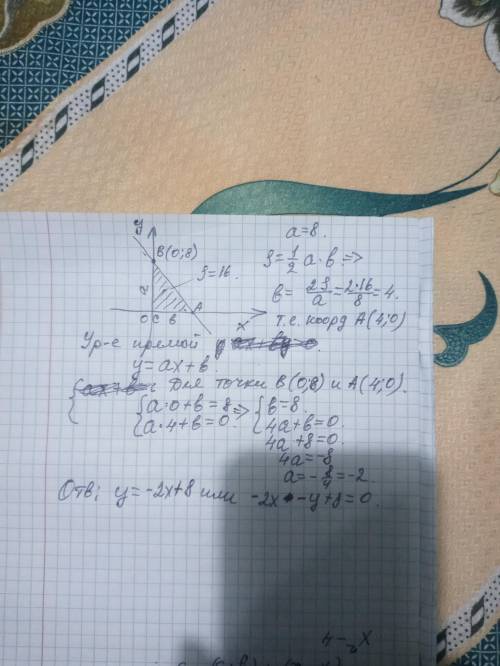 y
B(0;8)
S=16
a
A
O C в
x
a=8.
S=1/2 a·в =>
в=2S/a=2·16/8=4.
т.е. коорд A(4;0)
Ур-е прямой
y=ax+в.
Для точки B(0;8) и A(4;0).
{a·0+в=8
a·4+в=0. => {в=8.
4a+в=0.
4a+8=0.
4a=-8
a=-8/4=-2.
Отв: y=-2x+8 или -2x-y+8=0.